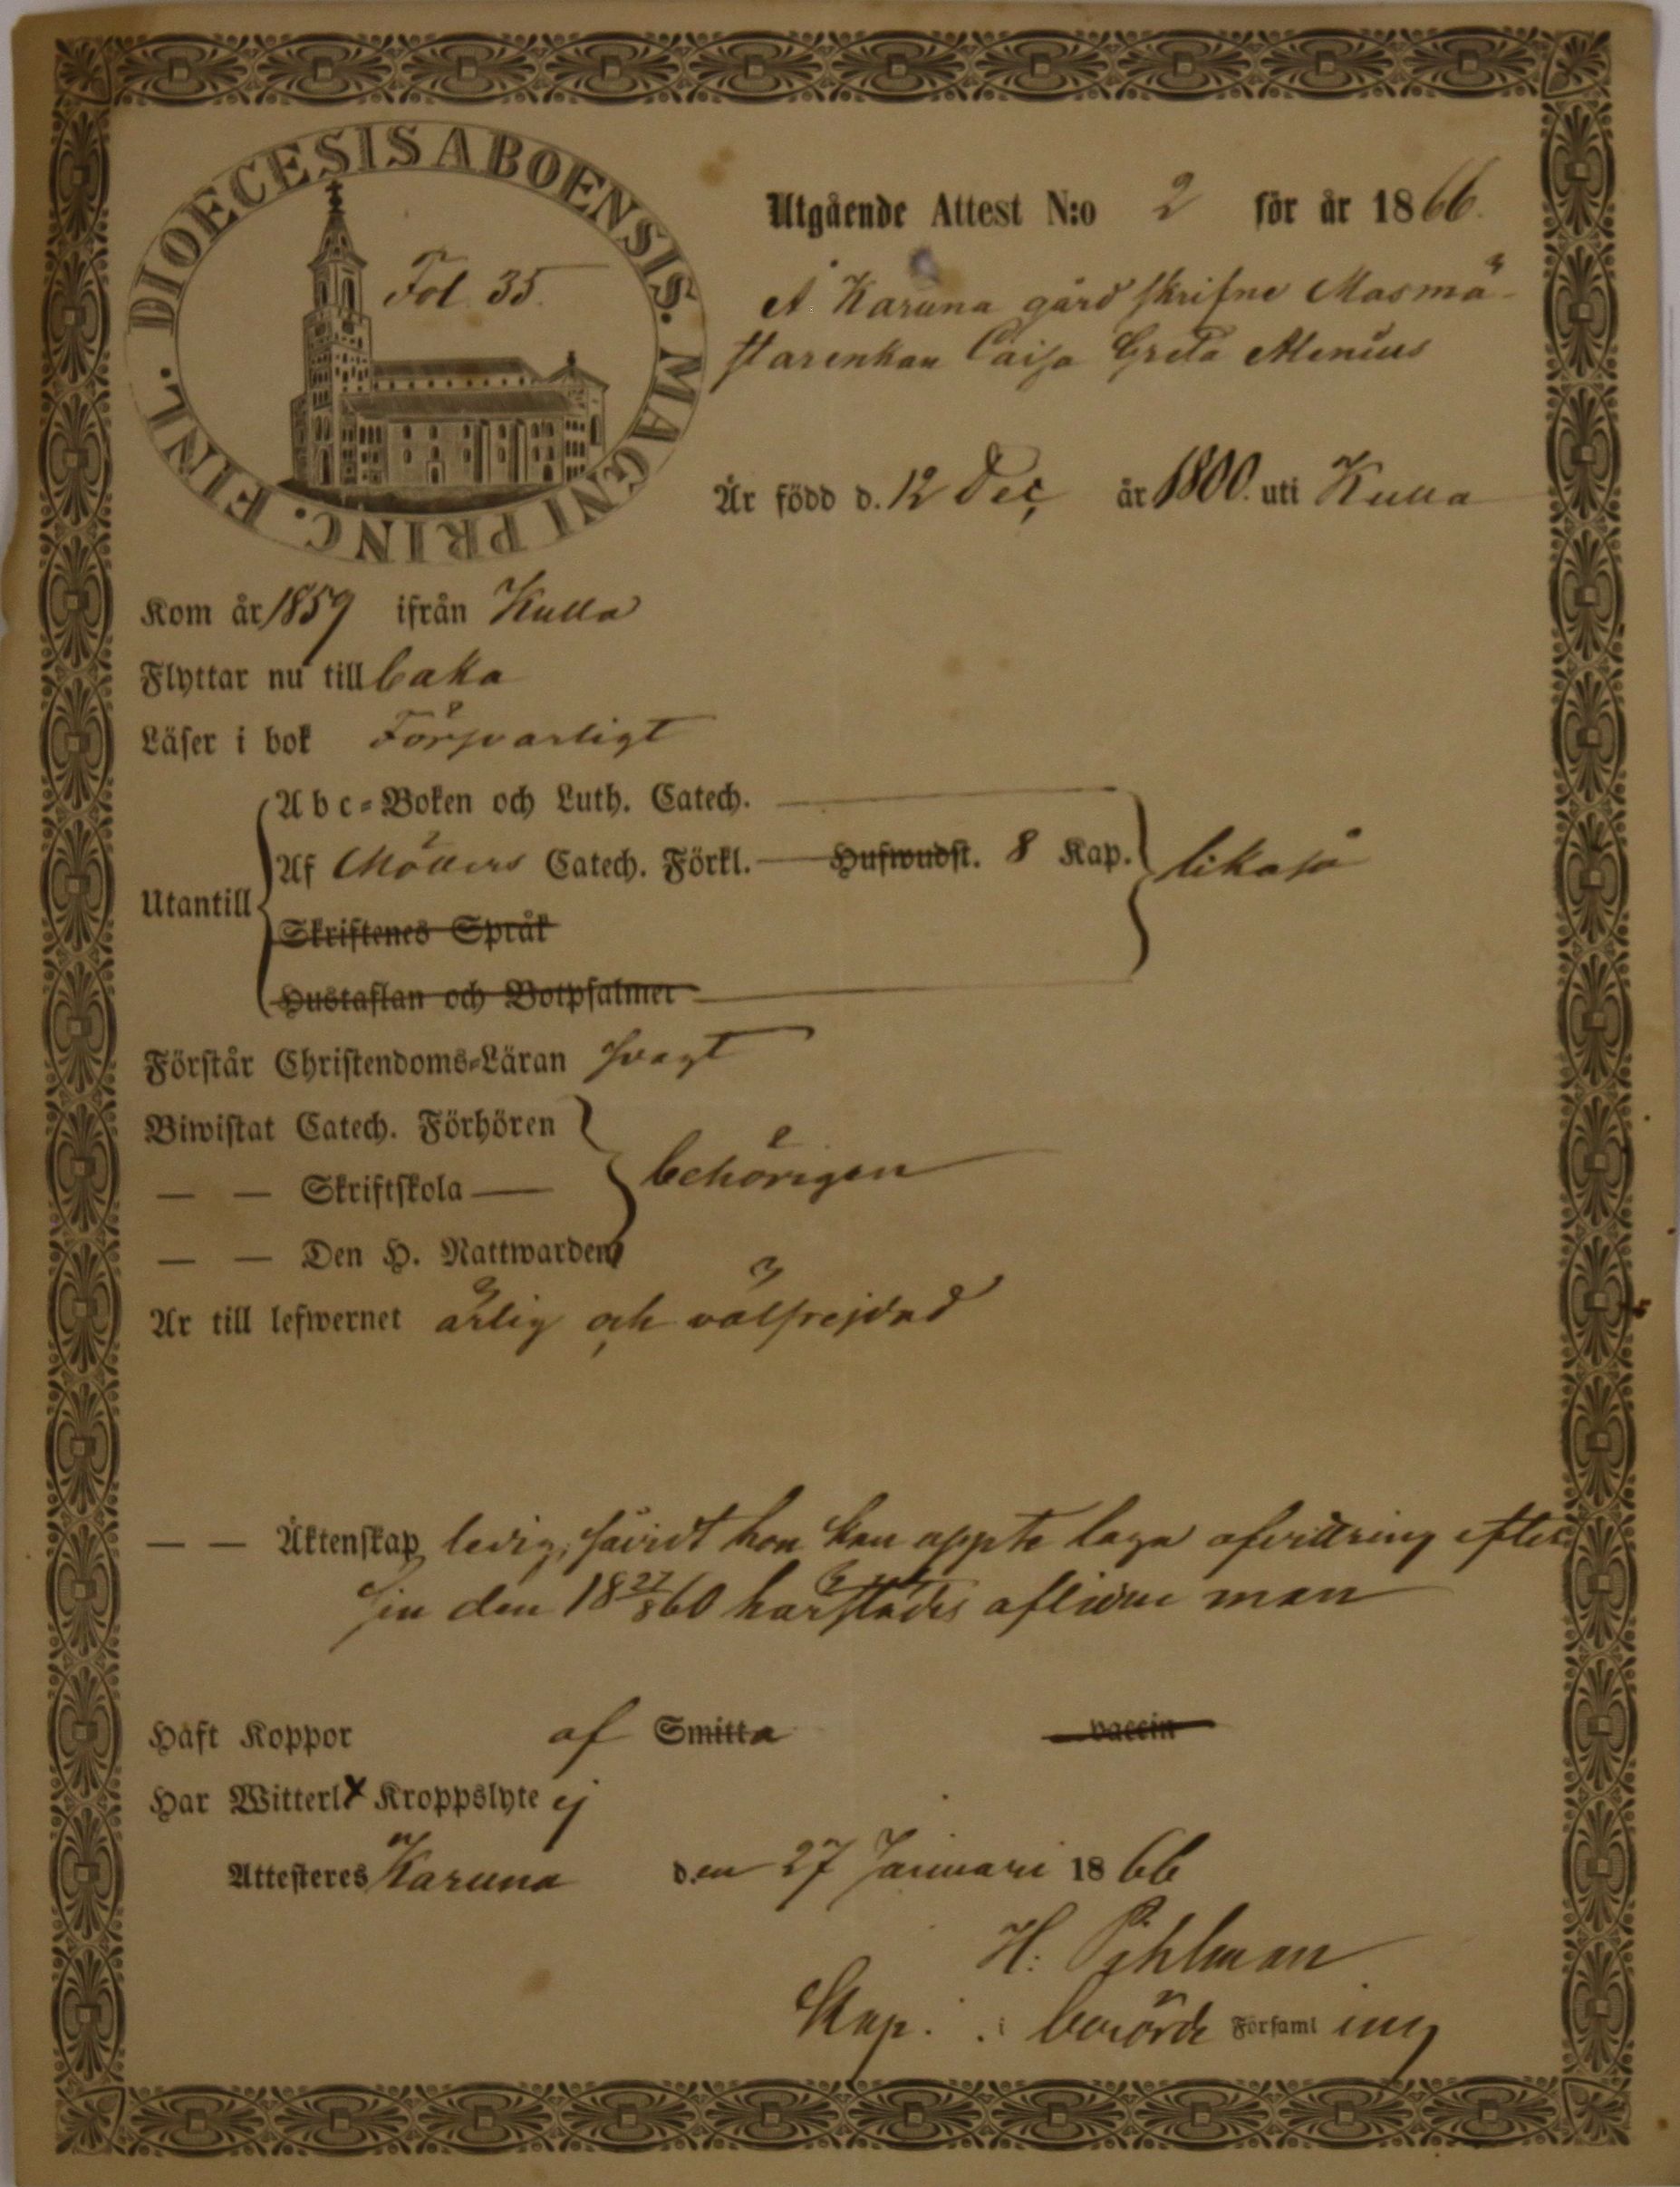 DIOECESIS ABOENSIS. MAGNI PRINC. FINL.
Fol. 35.
Utgående Attest N:o 2 för år 1866.
Å Karuna gård skrifne Masmä-
starenkan Caisa Greta Alenius
Är född d. 12 Dec är 1800. uti Kulla
Kom år 1859 ifrån Kulla
Flyttar nu till baka
Läser i bok Försvarligt
Abc-Boken och Luth. Catech.
Utantill Af Möllers Catech. Förkl. — Hufwudst. 8 Kap. likaså
Skriftenes Språk
Hustaflan och Botpsalmer
Förstår Christendoms-Läran svagt
Biwistat Catech. Förhören
— — Skriftskola — behörigen
— — Den H. Nattwarden
Är till lefwernet ärlig och välfrejdad
— — Äktenskap ledig, såvidt hon kan uppte laga afvittring efter
sin den 18 27/8 60 härstädes aflidne man
Haft Koppor af Smitta vaccin
Har Witterl. Kroppslyte ej
Attesteres Karuna den 27 Januari 1866
H. Pihlman
Kap. i berörde Församling